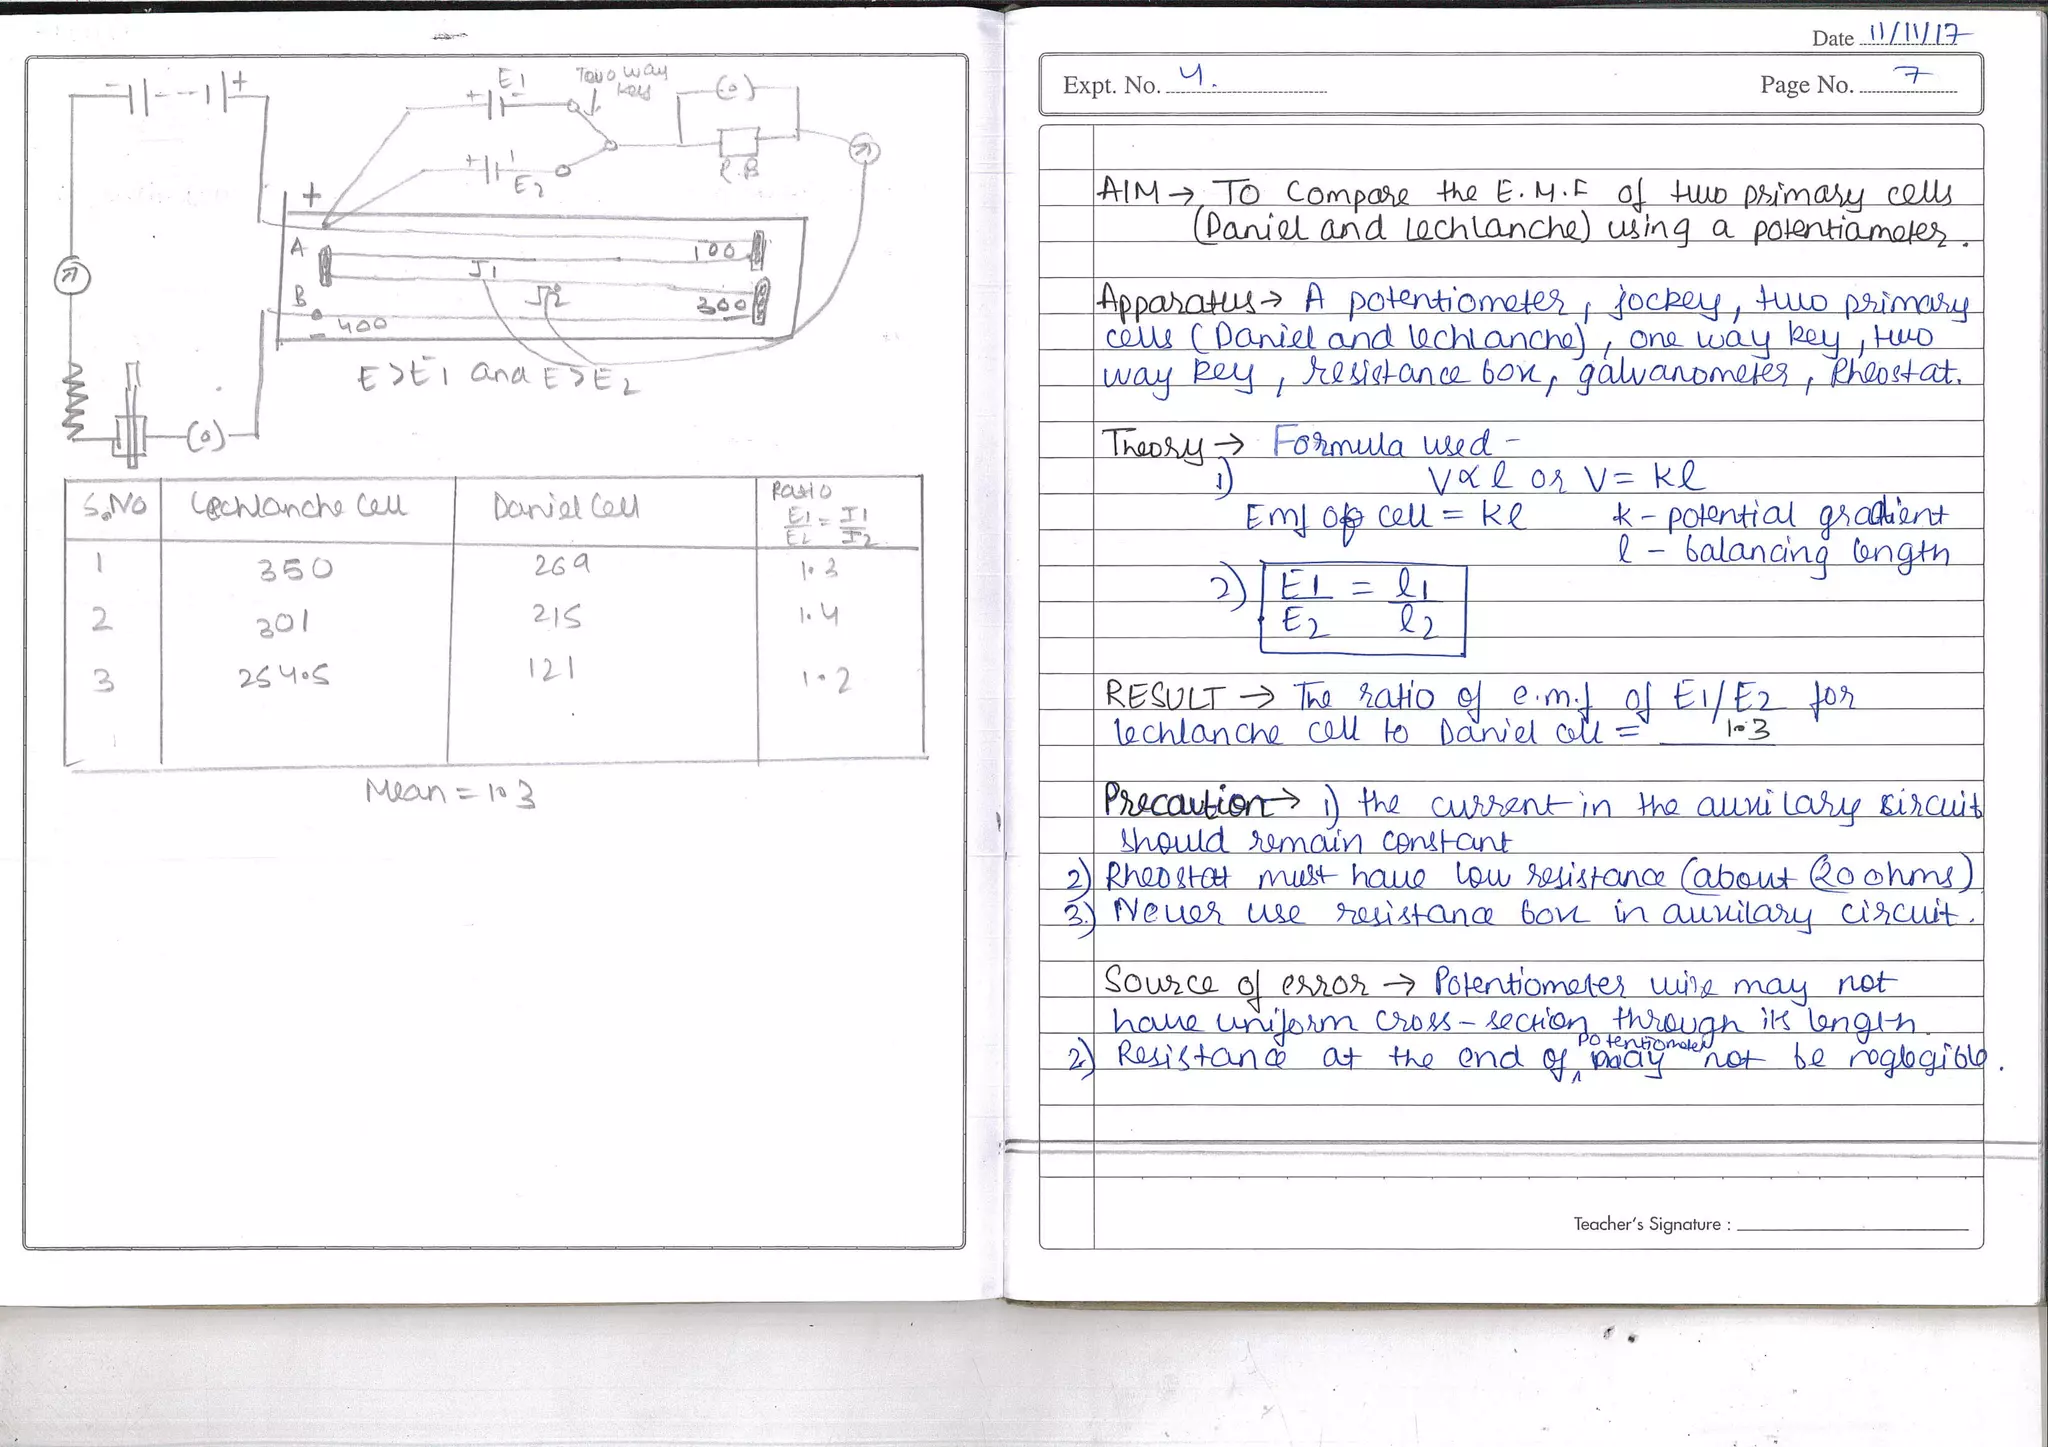 - +
E1
Two way
key
+ -
( o )
+ '
E2
R.B
+
A
100
J1
B
J2
300
-
400
E>E1 and E>E2
(o)
S.No Lechlanche Cell Daniel Cell Ratio
E1 = I1
E2 I2
1 350 269 1.3
2 301 215 1.4
3 254.5 121 1.2
Mean = 1.3
Date 11/11/17
Expt. No. 4. Page No. 7
AIM → To Compare the E.M.F of two primary cells
(Daniel and Lechlanche) using a potentiameter.
Apparatus → A potentiometer, jockey, two primary
cells (Daniel and lechlanche), one way key, two
way key, resistance box, galvanometer, Rheostat.
Theory → Formula used -
1) V∝l or V = kl
Emf of cell = kl k - potential gradient
l - balancing length
2) E1 = l1
E2 l2
RESULT → The ratio of e.m.f of E1/E2 for
lechlanche cell to Daniel cell = 1.3
Precaution → 1) the current in the auxilary circuit
should remain constant
2) Rheostat must have low resistance (about (20 ohms)
3.) Never use resistance box in auxilary circuit.
Source of error → Potentiometer wire may not
have uniform cross-section through its length.
2) Resistance at the end of potentiometer may not be neglegible.
Teacher's Signature :